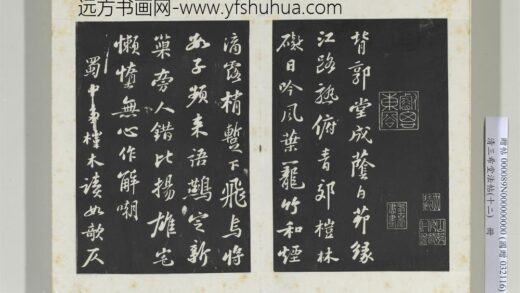 远方书画网-www.yfshuhua.com
背郭堂成蔭白茆緣
江路熟俯青郊榿林
礙日吟風葉籠竹和煙
滴露梢暫下飛烏將
數子頻來語鷰定新
巢旁人錯比揚雄宅
懶惰無心作解嘲
蜀中多榿木讀如欹仄
贈帖 000089N000000000 (國贈 032116)
清三希堂法帖(十二) 冊